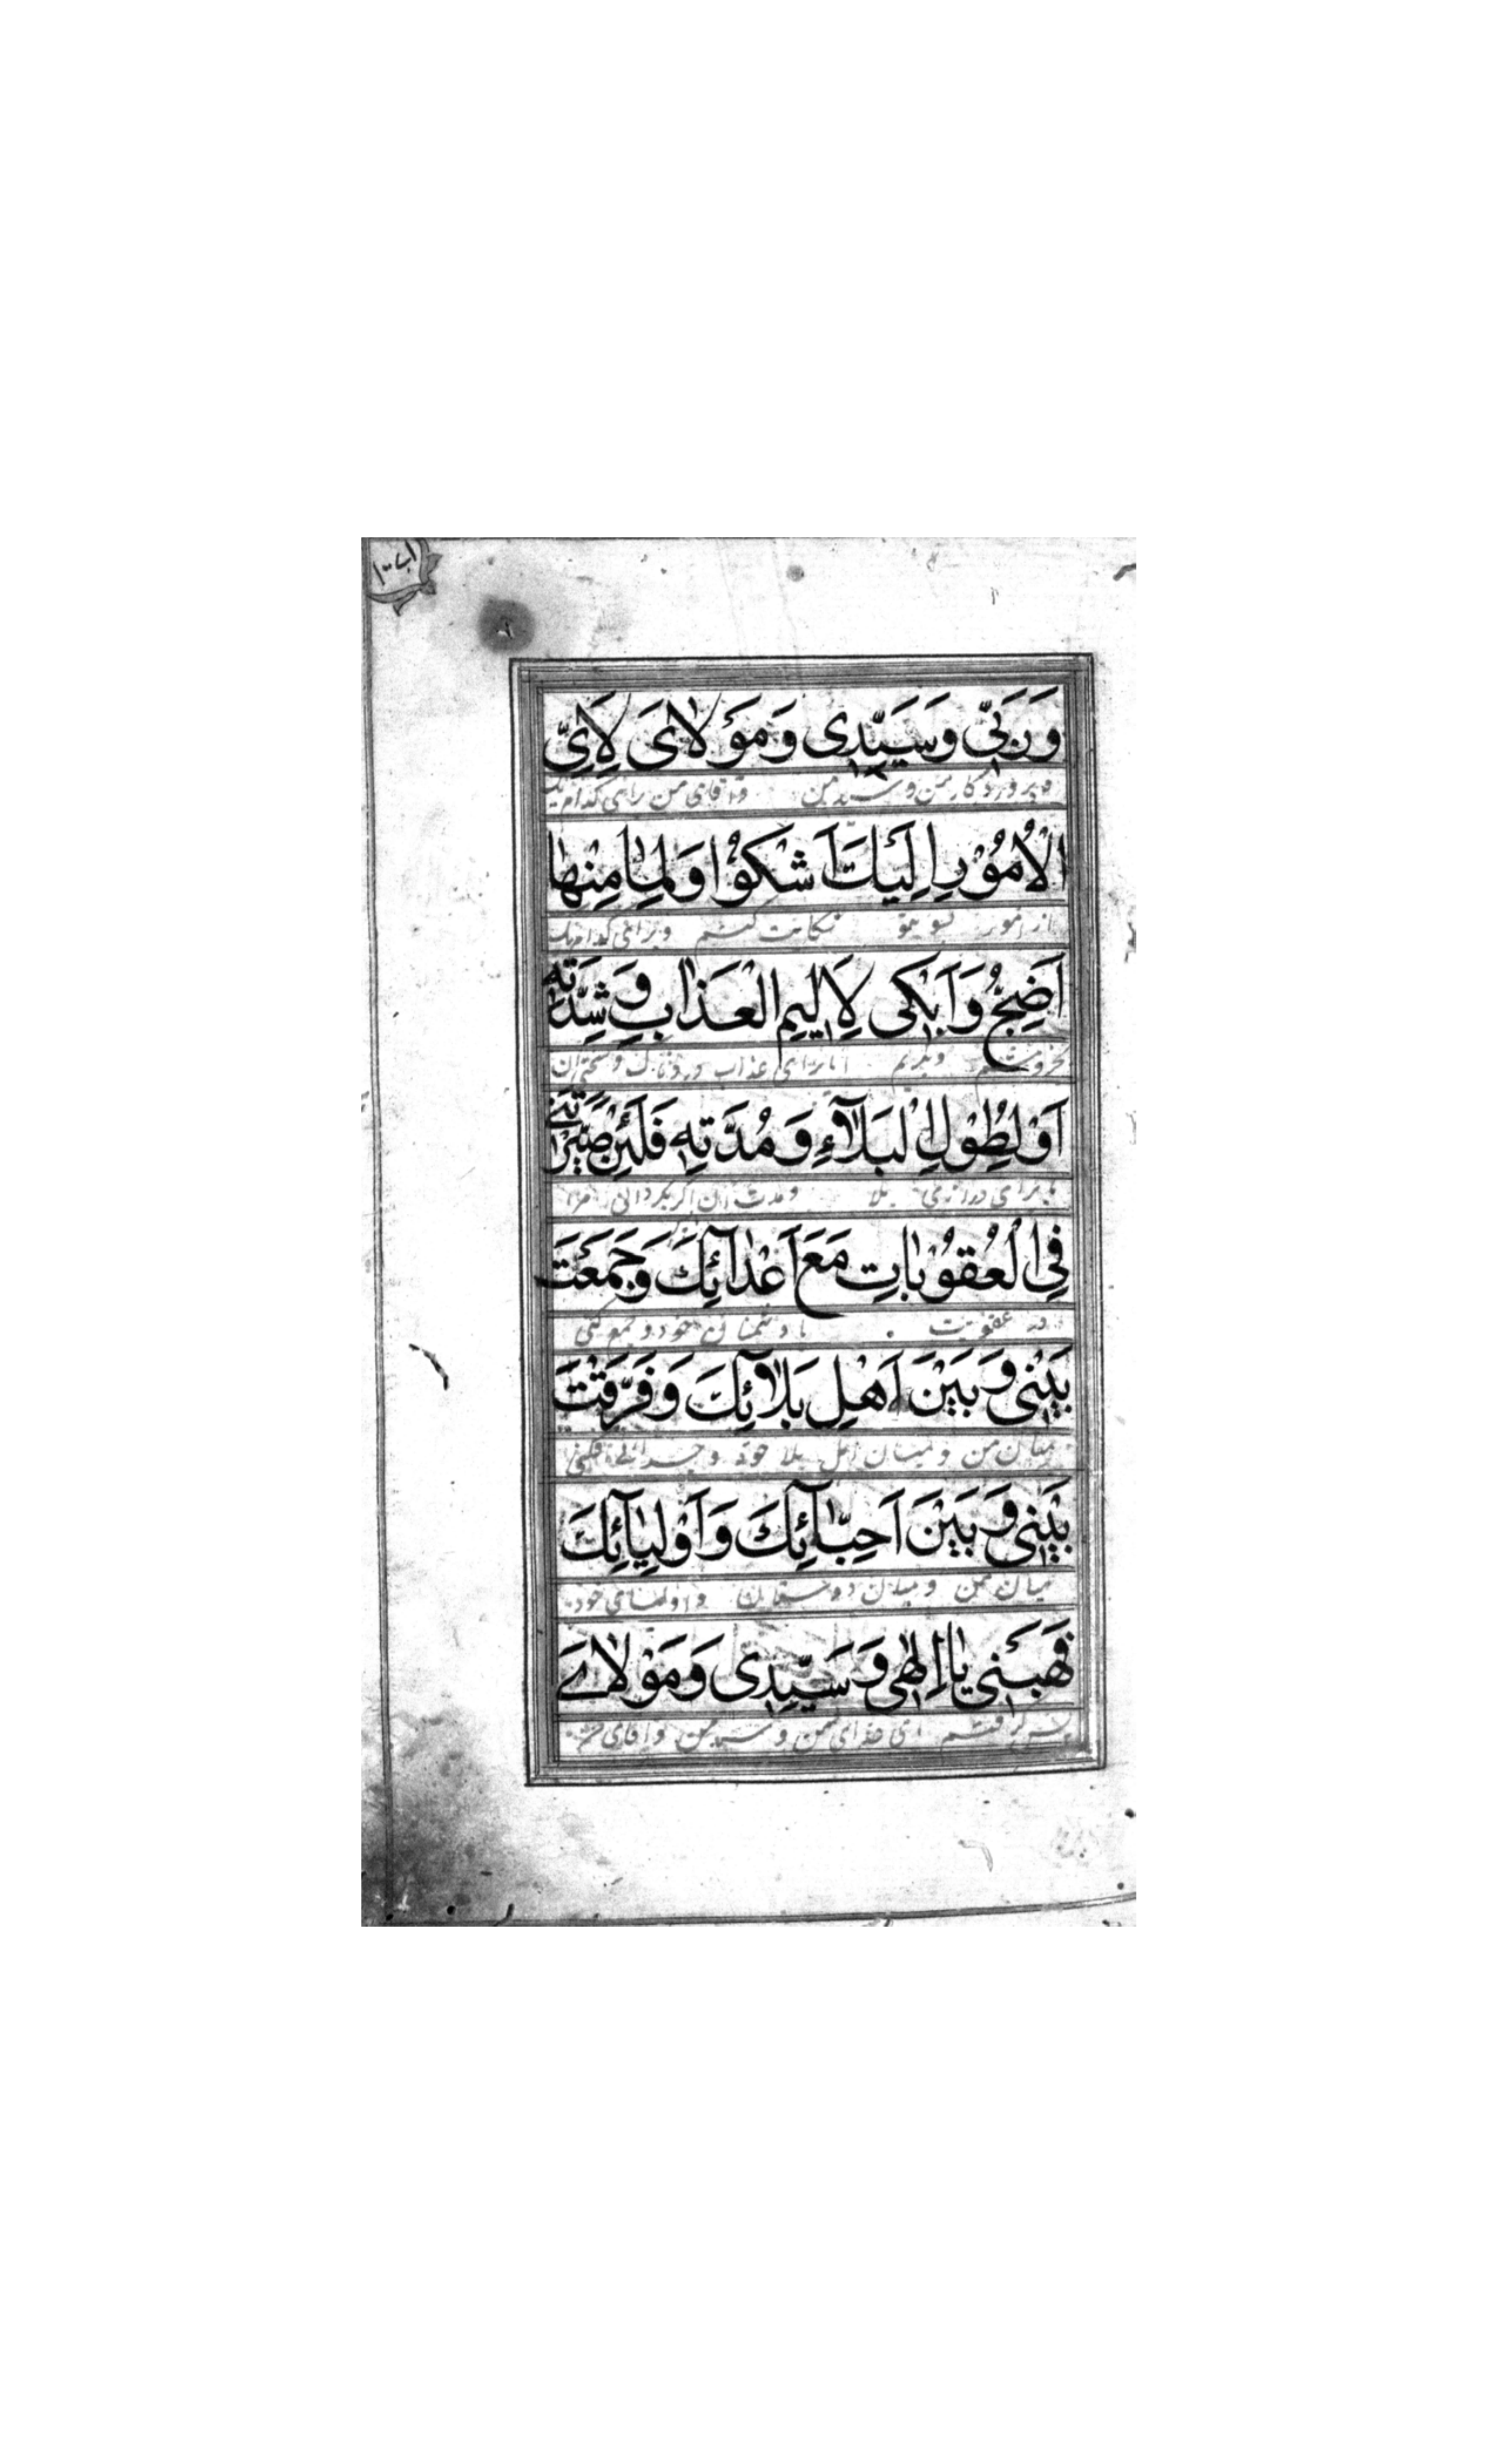 وَرَبّي وَسَيِّدِي وَمَوْلايَ لِاَيِّ
و پروردگار من و سید من و آقای من برای کدام یک
الْاُمُوْرِ اِلَيْكَ اَشْكُوْا وَلِمٰا مِنْهٰا
از امور بسوی تو شکایت کنم و برای کدام یک
اَضِجُّ وَاَبْكي لِاَليمِ الْعَذابِ وَشِدَّتِهِ
بخروشم و بگریم آیا برای عذاب دردناک و سختی آن
اَوْ لِطُوْلِ الْبَلآءِ وَمُدَّتِهِ فَلَئِنْ صَيَّرْتَني
یا برای درازی بلا و مدت آن اگر بگردانی مرا
فِي الْعُقوُبٰاتِ مَعَ اَعْدٰآئِكَ وَجَمَعْتَ
در عقوبت با دشمنان خود و جمع کنی
بَيْني وَبَيْنَ اَهْلِ بَلٰآئِكَ وَفَرَّقْتَ
میان من و میان اهل بلا خود و جدائی افکنی
بَيْني وَبَيْنَ اَحِبّٰآئِكَ وَاَوْلِيٰآئِكَ
میان من و میان دوستان و اولیای خود
فَهَبْني يٰا اِلٰهي وَسَيِّدِي وَمَوْلايَ
پس گرفتم ای خدای من و سید من و آقای من